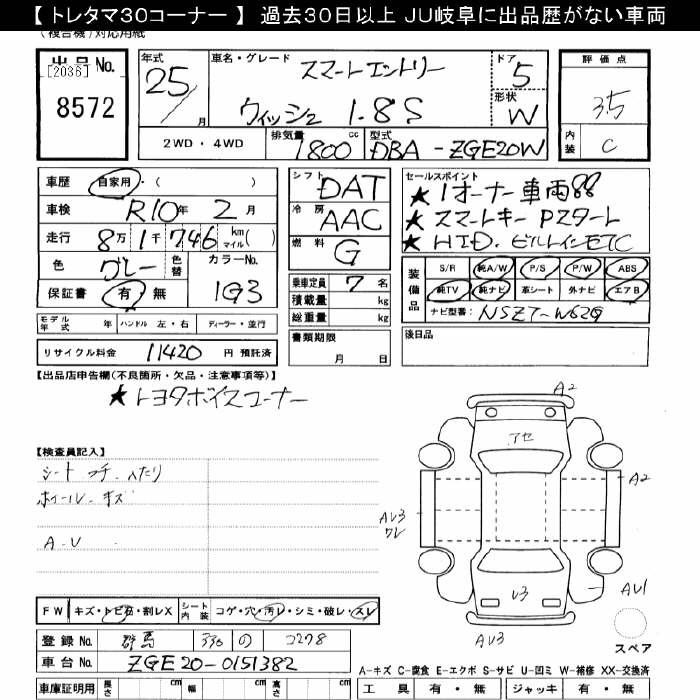 【 トレタマ30コーナー 】 過去30日以上 JU岐阜に出品歴がない車両
(複合機)対応用紙
出品No.
[2036]
8572
年式
25/月
車名・グレード
スマートエントリー
ウィッシュ 1.8S
ドア
5
形状
W
評価点
3.5
内装
C
2WD・4WD
排気量
1800 cc
型式
DBA-ZGE20W
車歴 自家用・( )
車検 R10年 2月
走行 8万 1千 746 km マイル( )
色 グレー 色替
カラーNo.
1G3
保証書 有・無
シフト DAT
冷房 AAC
燃料 G
乗車定員 7 名
積載量 kg
総重量 kg
書類期限
月 日
セールスポイント
★1オーナー車両!!
★スマートキー Pスタート
★HID. ビルトインETC
装備品
S/R 純A/W P/S P/W ABS
純TV 純ナビ 革シート 外ナビ エアB
ナビ型番: NSZT-W62G
後日品
モデル年式 年 ハンドル 左・右 ディーラー・並行
リサイクル料金 11420 円 預託済
【出品店申告欄(不良箇所・欠品・注意事項等)】
★トヨタボイスコーナー
【検査員記入】
シート コゲ. ヘたり
ホイール. キズ
A-U
A2
アセ
A2
AU3
ワレ
U3
AU1
AU3
スペア
FW キズ・トビ石・割レX
シート内装 コゲ・穴・汚レ・シミ・破レ・スレ
登録No. 群馬 330 の 2278
車台No. ZGE20-0151382
車庫証明用 長さ cm 幅 cm 高さ cm
A-キズ C-腐食 E-エクボ S-サビ U-凹ミ W-補修 XX-交換済
工具 有・無 ジャッキ 有・無